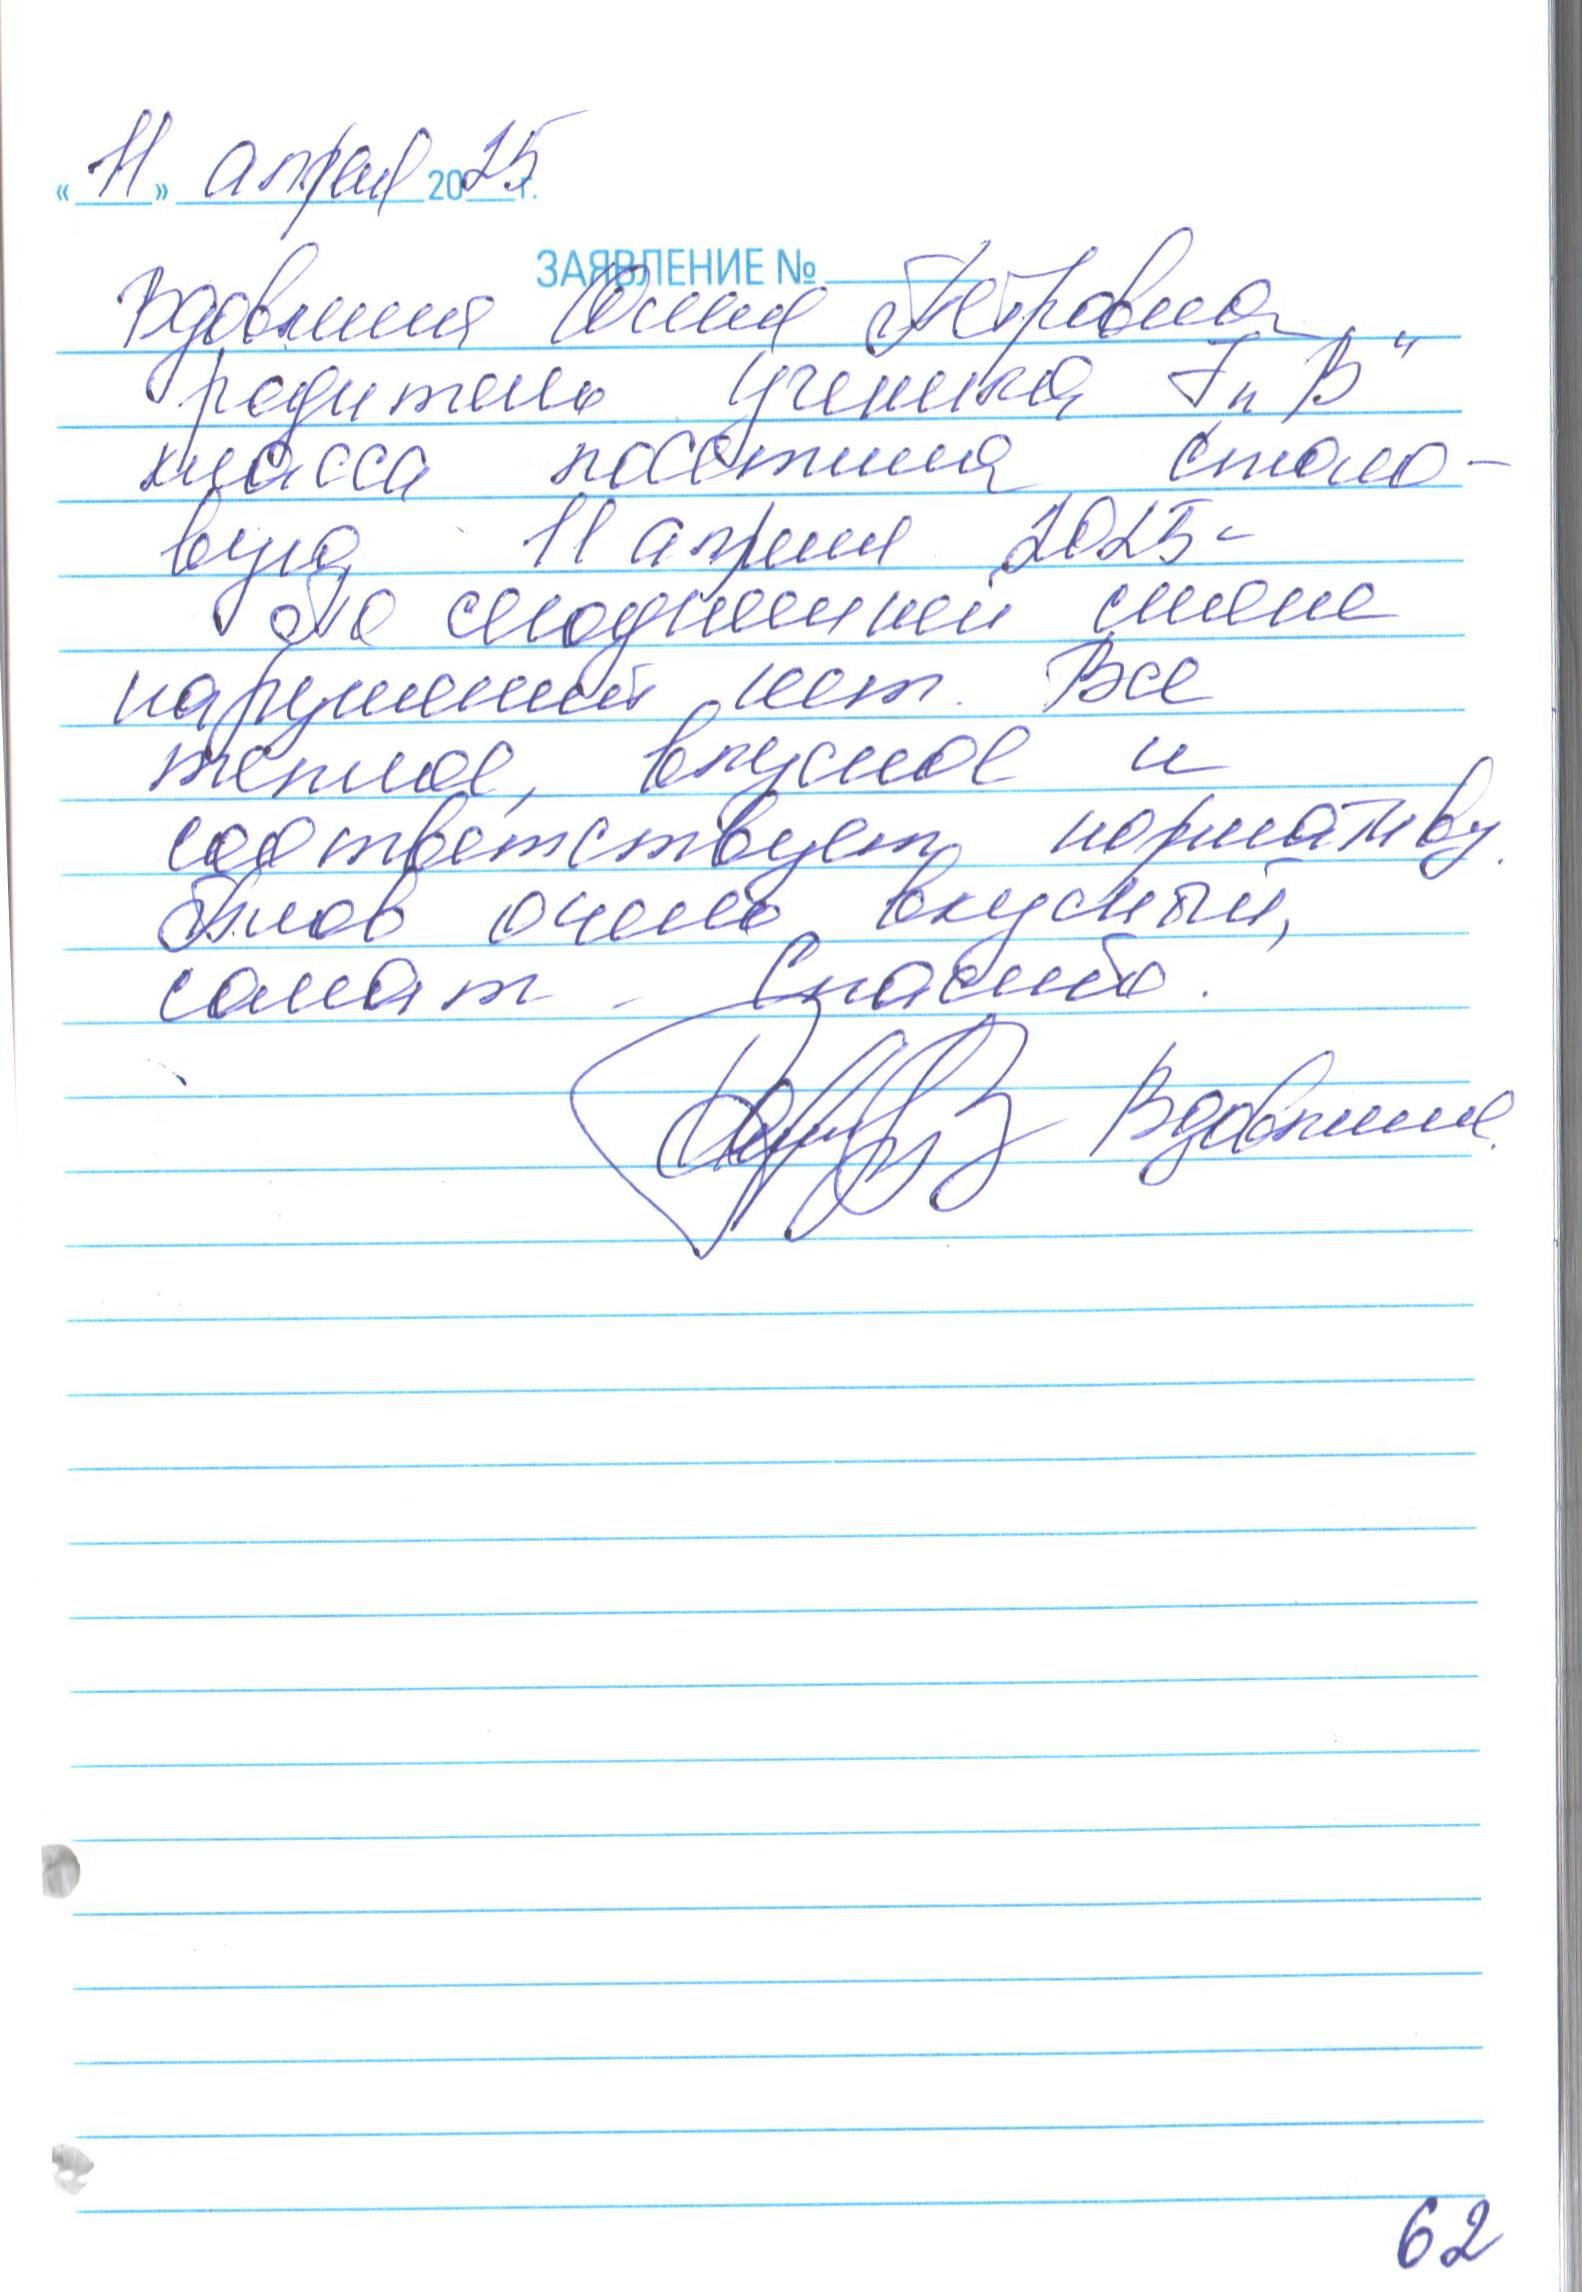 « 11 » апреля 2025 г.
ЗАЯВЛЕНИЕ №
Юлия Петровна
родитель ученика "В"
класса посетила столо-
вую 11 апреля 2025-
По сегодняшней смене
нарушений нет. Все
теплое, вкусное и
соответствует нормативу.
Плов очень вкусный,
салат - Спасибо.
62